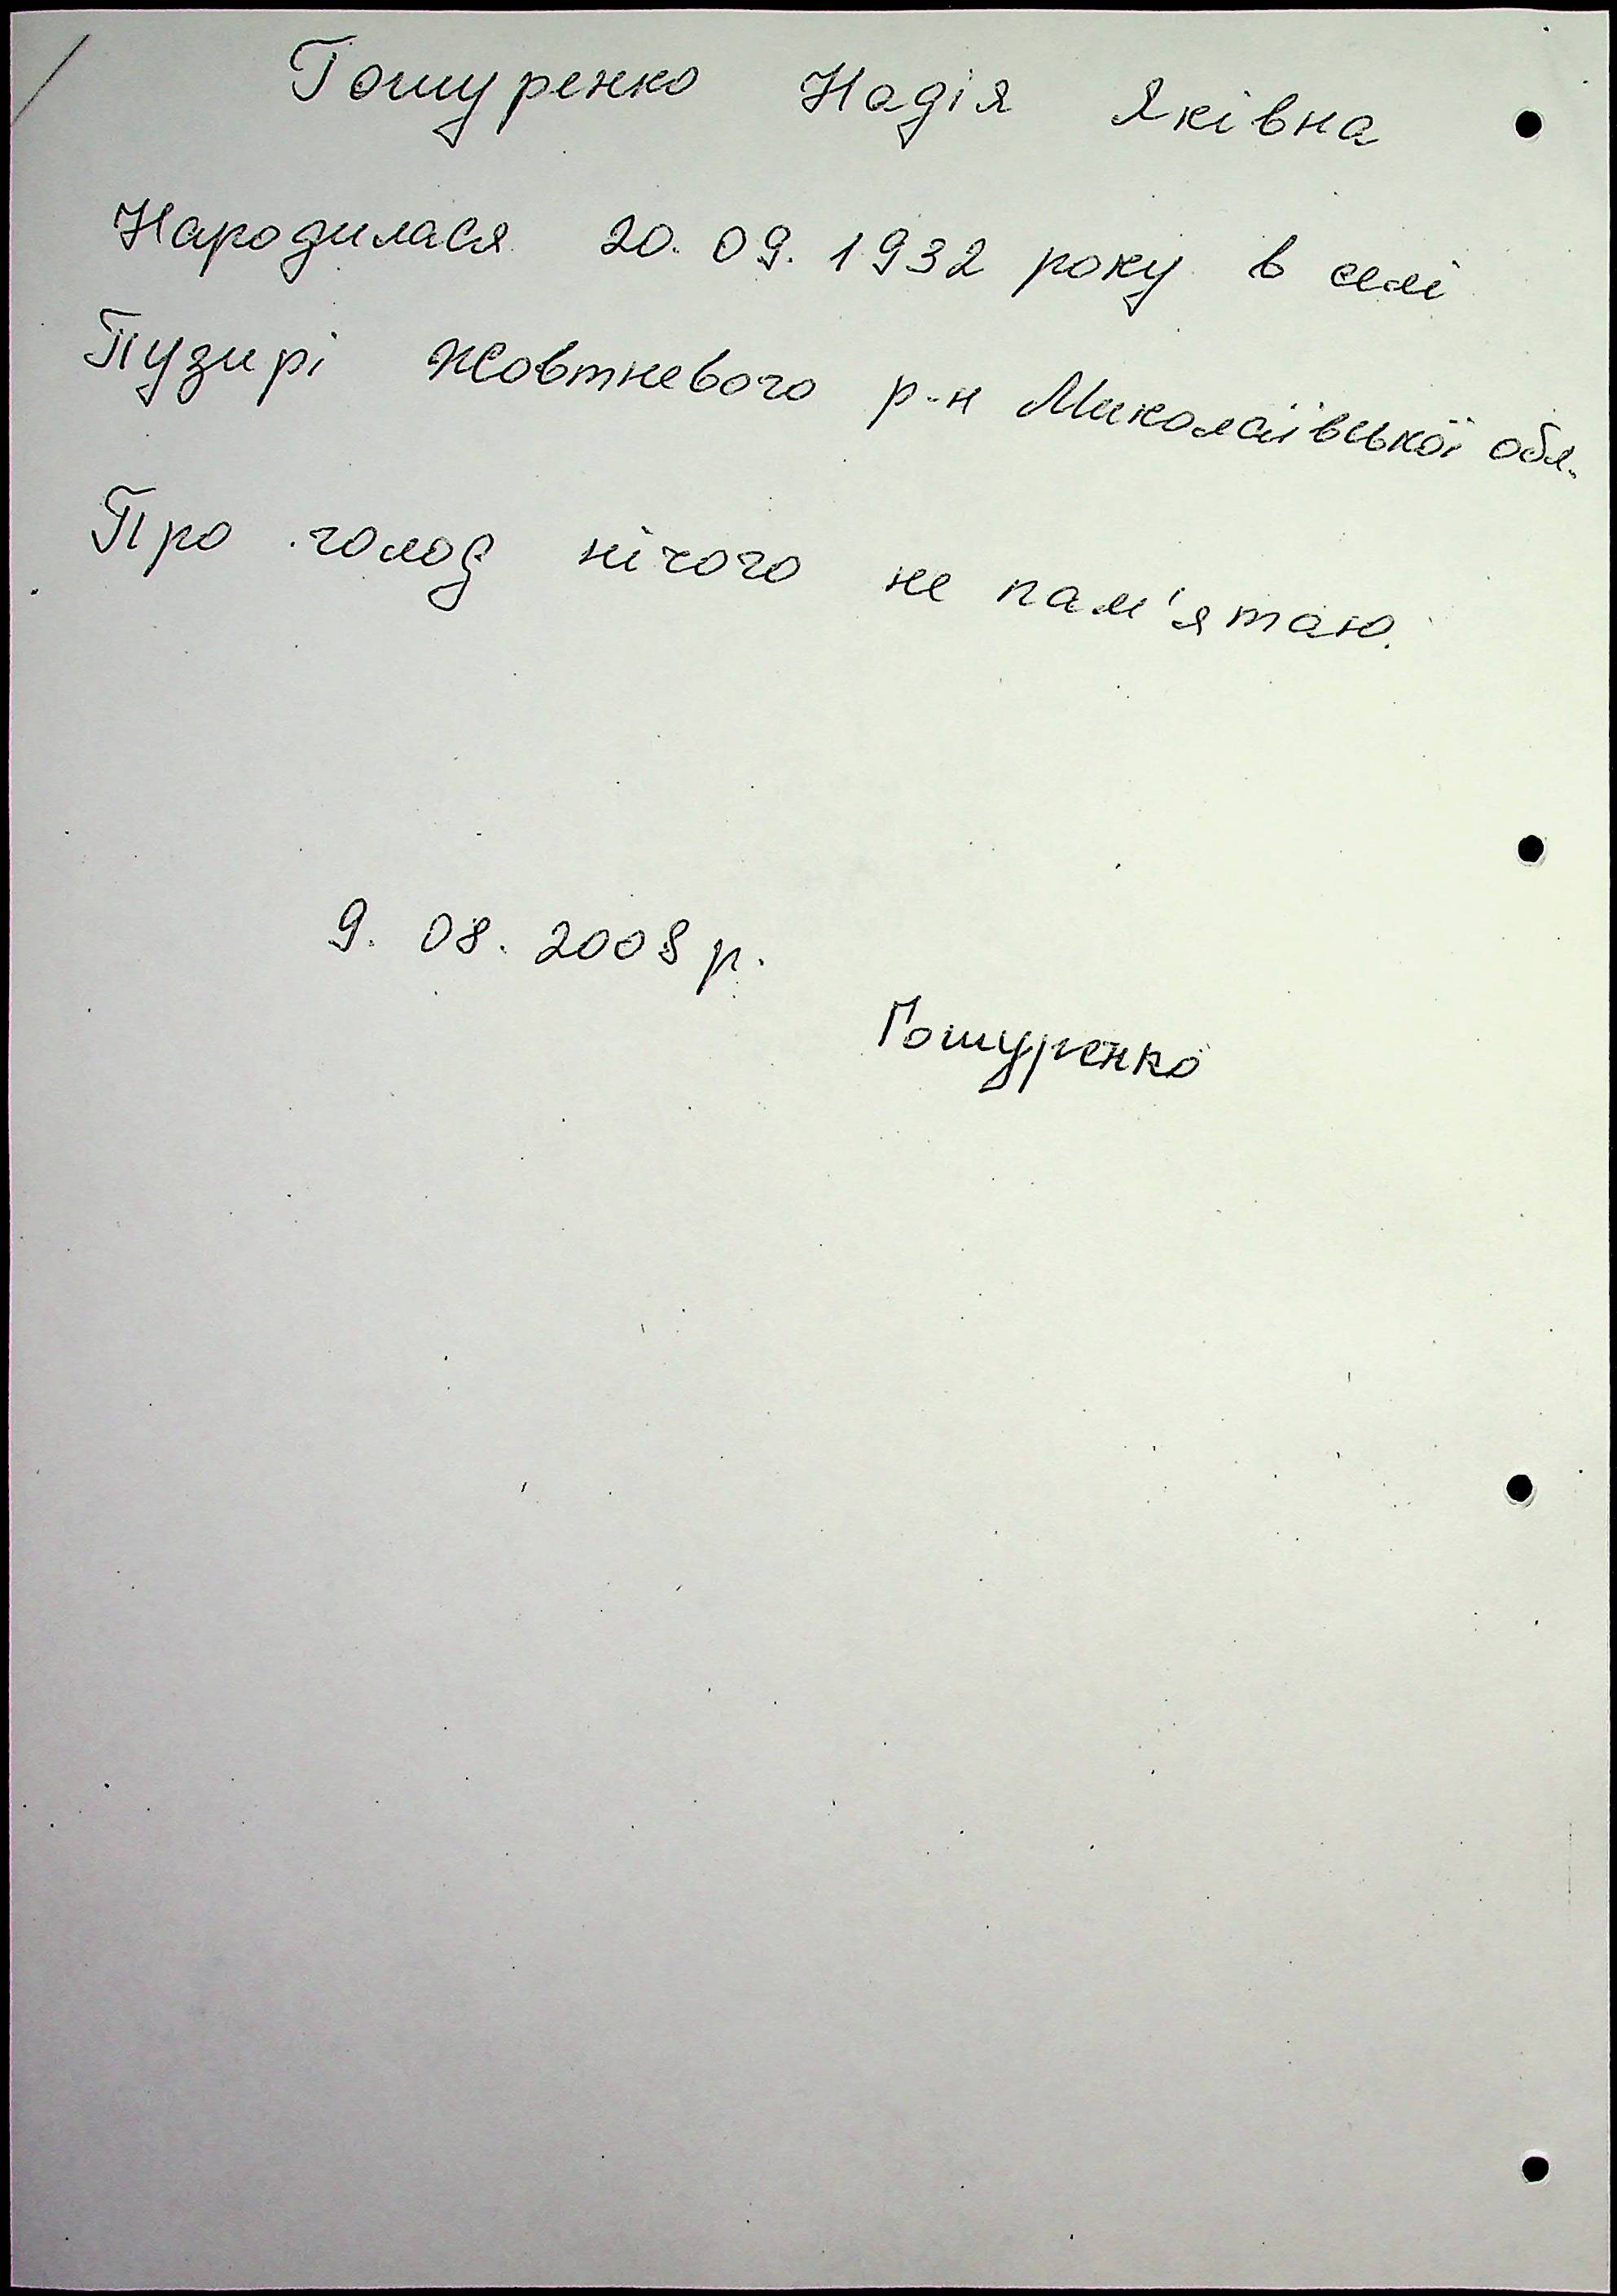 Гошуренко Надія Яківна
Народилася 20.09.1932 року в селі
Пузирі Жовтневого р-н Миколаївської обл.
Про голод нічого не пам'ятаю.
9. 08. 2008 р.
Гошуренко